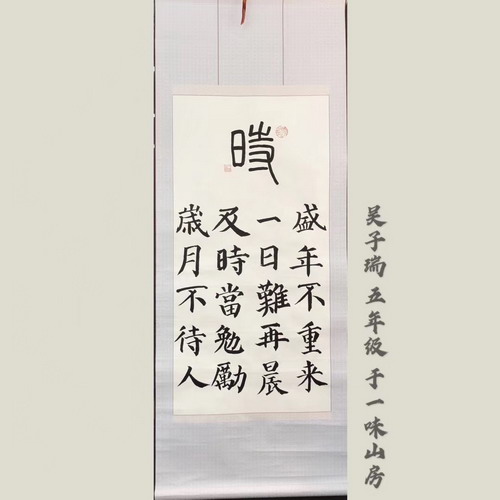 時
盛年不重来
一日難再晨
及時當勉勵
歲月不待人
吴子瑞 五年级 于一味山房